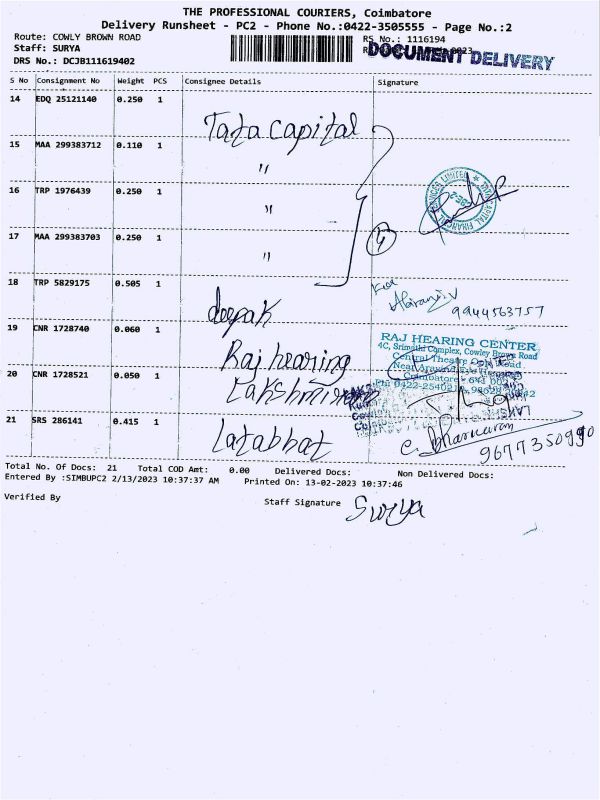 THE PROFESSIONAL COURIERS, Coimbatore
Delivery Runsheet - PC2 - Phone No.:0422-3505555 - Page No.:2
Route: COWLY BROWN ROAD
Staff: SURYA
DRS No.: DCJB111619402
RS No.: 1116194
DOCUMENT DELIVERY
S No Consignment No Weight PCS Consignee Details Signature
14 EDQ 25121140 0.250 1 Tata capital
15 MAA 299383712 0.110 1 "
16 TRP 1976439 0.250 1 "
17 MAA 299383703 0.250 1 " 4
18 TRP 5829175 0.505 1 deepak 9944563757
19 CNR 1728740 0.060 1 Raj hearing
RAJ HEARING CENTER
4C, Srimathi Complex, Cowley Brown Road
Central Theatre Road
Coimbatore - 641 002
20 CNR 1728521 0.050 1
21 SRS 286141 0.415 1 9677350990
Total No. Of Docs: 21 Total COD Amt: 0.00 Delivered Docs: Non Delivered Docs:
Entered By :SIMBUPC2 2/13/2023 10:37:37 AM Printed On: 13-02-2023 10:37:46
Verified By Staff Signature Surya